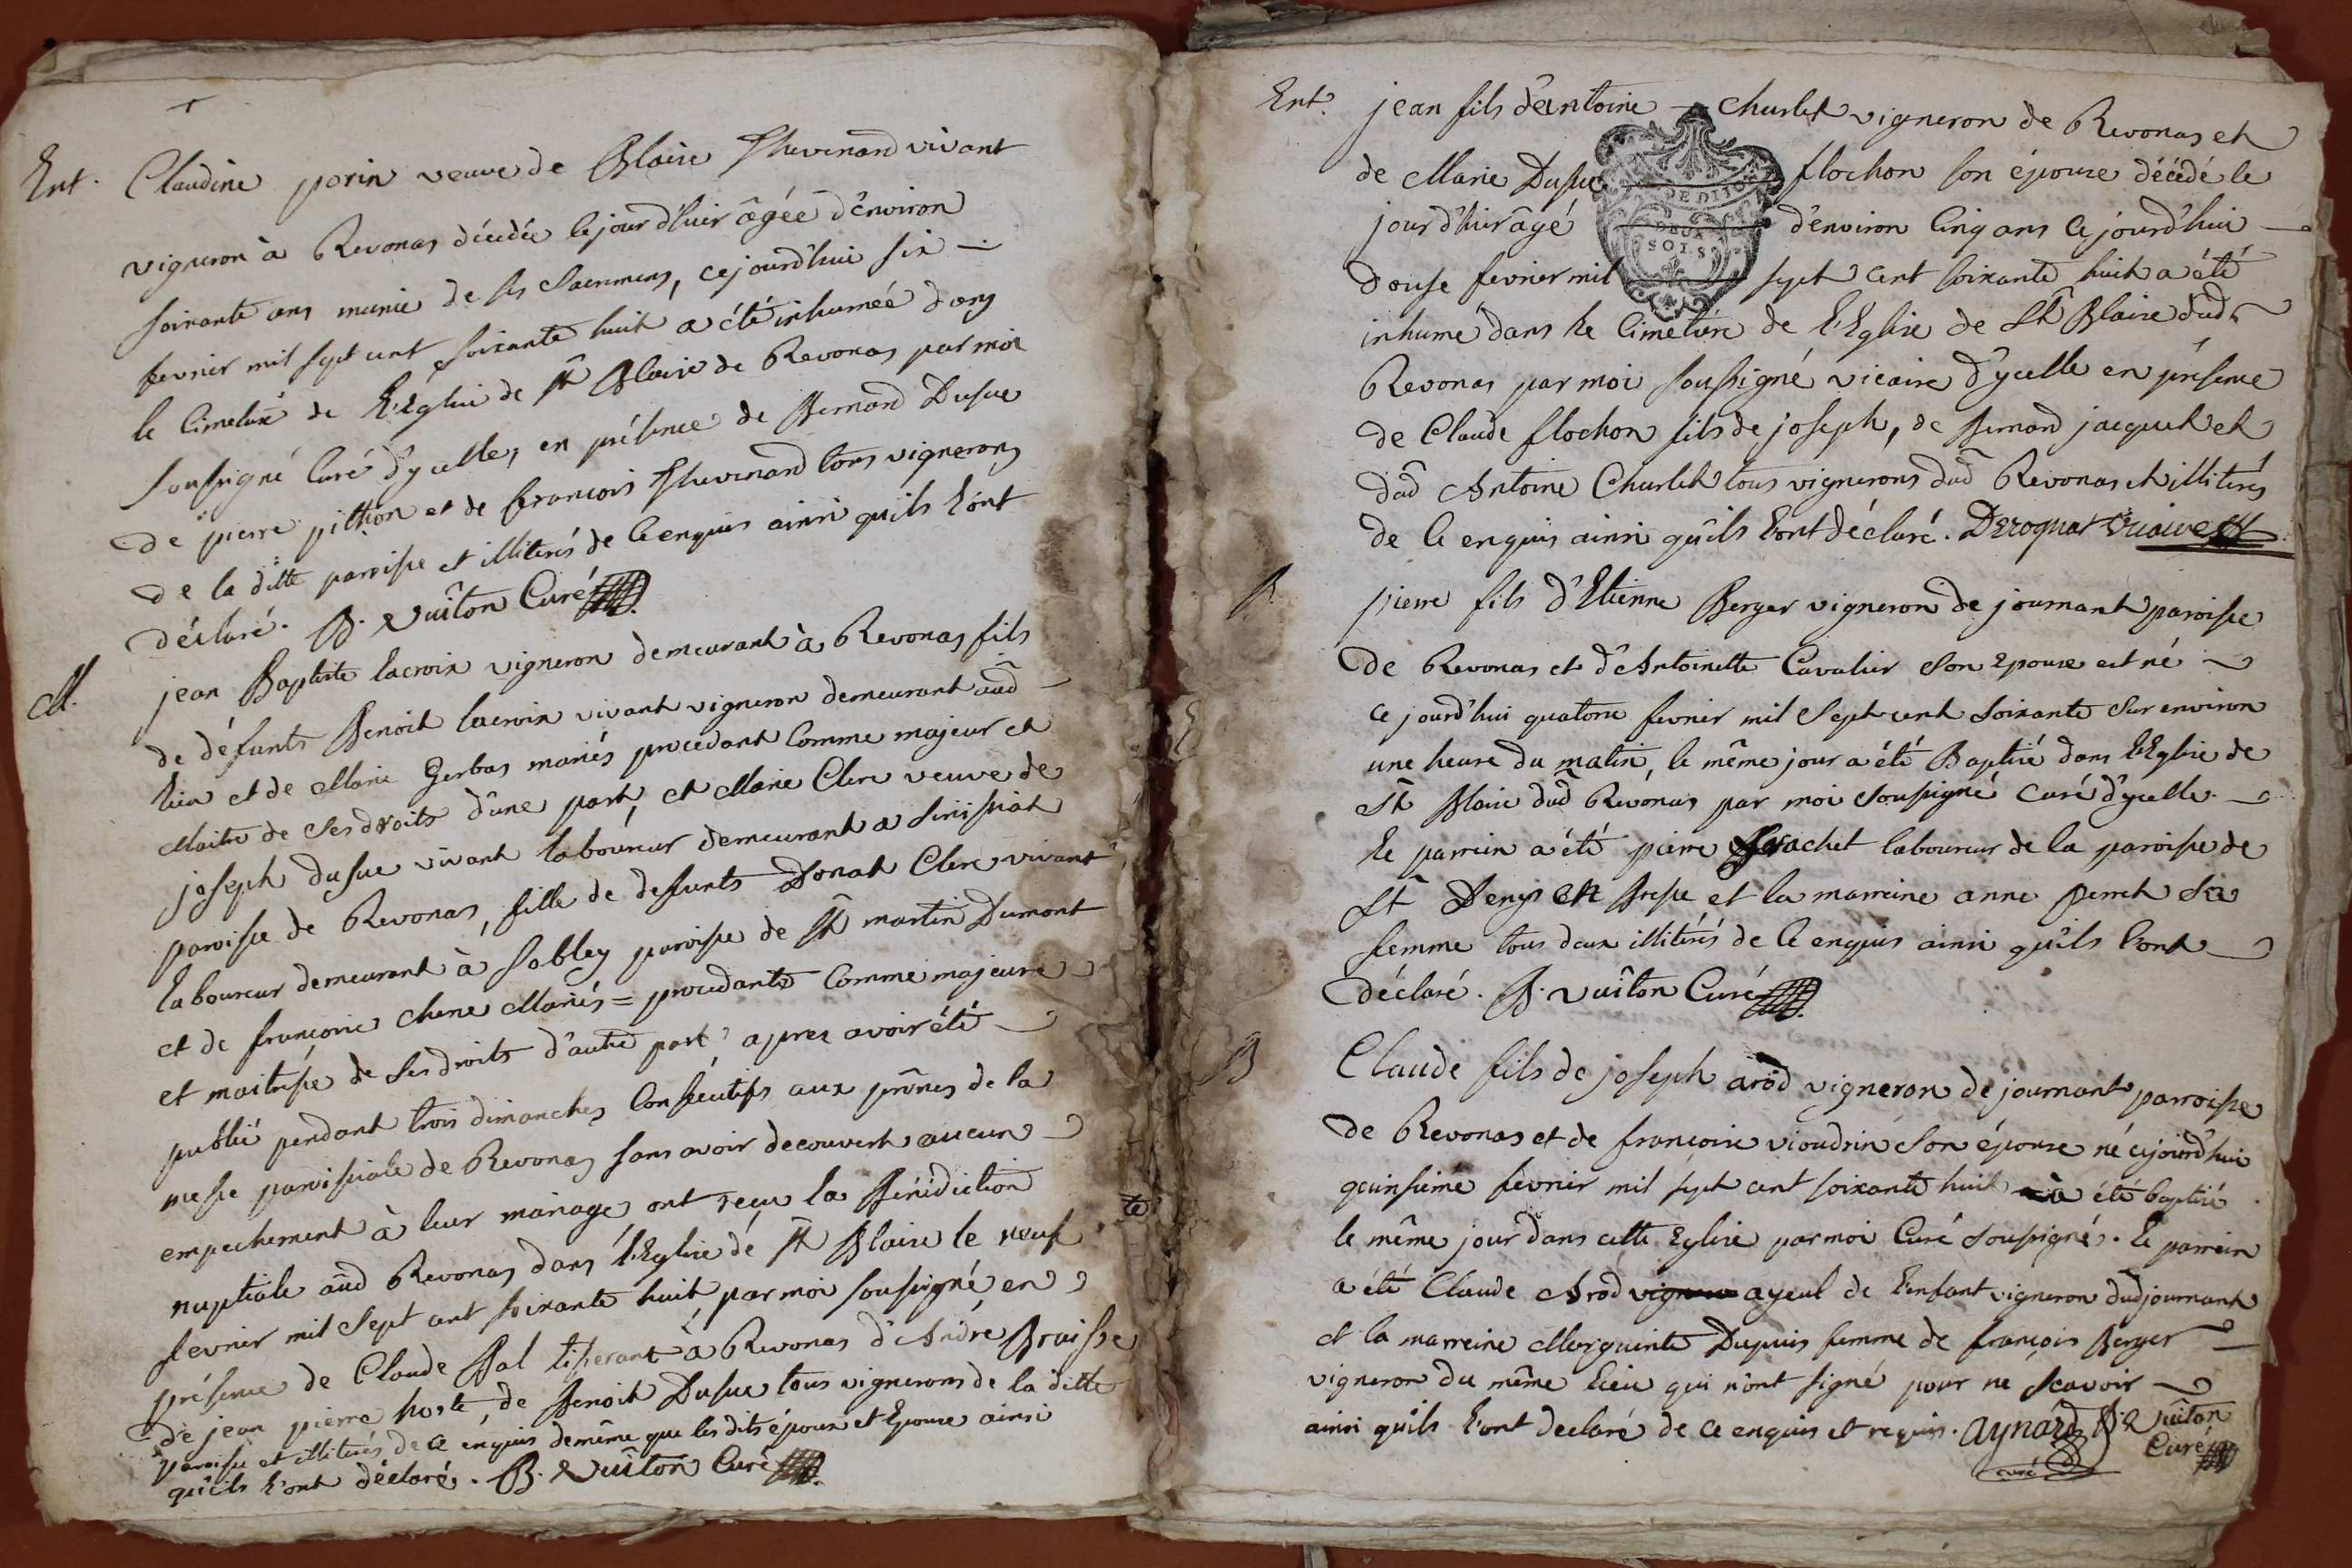 Ent. Claudine porin veuve de Blaise Thevenard vivant
vigneron à Revonas décédée le jour d'hier âgée d'environ
soixante ans munie de ses Sacremens, cejourd'hui six
fevrier mil sept cent soixante huit a été inhumée dans
le Cimetiere de l'Eglise de st Blaise de Revonas par moi
soussigné Curé d'ycelle, en présence de Bernard Dusuc
de pierre pithion et de françois Thevenard tous vignerons
de la ditte paroisse et illiterés de ce enquis ainsi qu'ils l'ont
déclaré. B. Vuiton Curé
M. jean Baptiste lacroix vigneron demeurant à Revonas fils
de défunts Benoit lacroix vivant vigneron demeurant aud
lieu et de Marie Gerbas mariés procedant Comme majeur et
Maitre de ses droits d'une part, et Marie Clerc veuve de
joseph dusuc vivant laboureur demeurant a Sinissiat
paroisse de Revonas, fille de defunts Donat Clerc vivant
laboureur demeurant à Sobley paroisse de st martin Dumont
et de françoise chene Mariés = procedante Comme majeure
et maitresse de ses droits d'autre part apres avoir été
publié pendant trois dimanches Consécutifs aux prônes de la
messe paroissiale de Revonas sans avoir decouvert aucun
empechement à leur mariage ont reçu la Bénédiction
nuptiale aud Revonas dans l'Eglise de st Blaise le neuf
fevrier mil sept cent soixante huit par moi soussigné en
présence de Claude Bal tisserant à Revonas d'André Braisse
de jean pierre hoste, de Benoit Dusuc tous vignerons de la ditte
paroisse et illiterés de ce enquis de même que les dits époux et Epouse ainsi
qu'ils l'ont déclaré. B. Vuiton Curé
Ent. jean fils d'antoine Churlet vigneron de Revonas et
de Marie Dusuc flochon son épouse décédé le
jour d'hier âgé d'environ Cinq ans Cejourd'hui
douse fevrier mil sept cent soixante huit a été
DEUX
SOLS
inhumé dans le Cimetiere de l'Eglise de St Blaise dud
Revonas par moi soussigné vicaire d'ycelle en présence
de Claude flochon fils de joseph, de Bernard jacquet et
dud Antoine Churlet tous vignerons dud Revonas et illiterés
de Ce enquis ainsi qu'ils l'ont déclaré. Derognat vicaire
B. pierre fils d'Etienne Berger vigneron de journant paroisse
de Revonas et d'Antoinette Cavalier son epouse est né
ce jourd'hui quatorse fevrier mil sept cent soixante sur environ
une heure du matin, le même jour a été Baptisé dans l'Eglise de
st Blaise dud Revonas par moi soussigné curé d'ycelle.
le parrein a été pierre Grachet laboureur de la paroisse de
st Denys en Bresse et la marreine anne perret sa
femme tous deux illiterés de Ce enquis ainsi qu'ils l'ont
déclaré. B. vuiton Curé
B Claude fils de joseph arod vigneron de journant parroisse
de Revonas et de françoise vioudrin son épouse né cejourd'hui
quinsieme fevrier mil sept cent soixante huit a été baptisé
le même jour dans cette Eglise par moi Curé soussigné. le parrein
a été Claude Arod ayeul de l'enfant vigneron dud journant
et la marreine Merguerite Dupuis femme de françois Berger
vigneron du même lieu qui n'ont signé pour ne sçavoir
ainsi qu'ils l'ont declaré de ce enquis et requis. aynard B. Vuiton
curé Curé